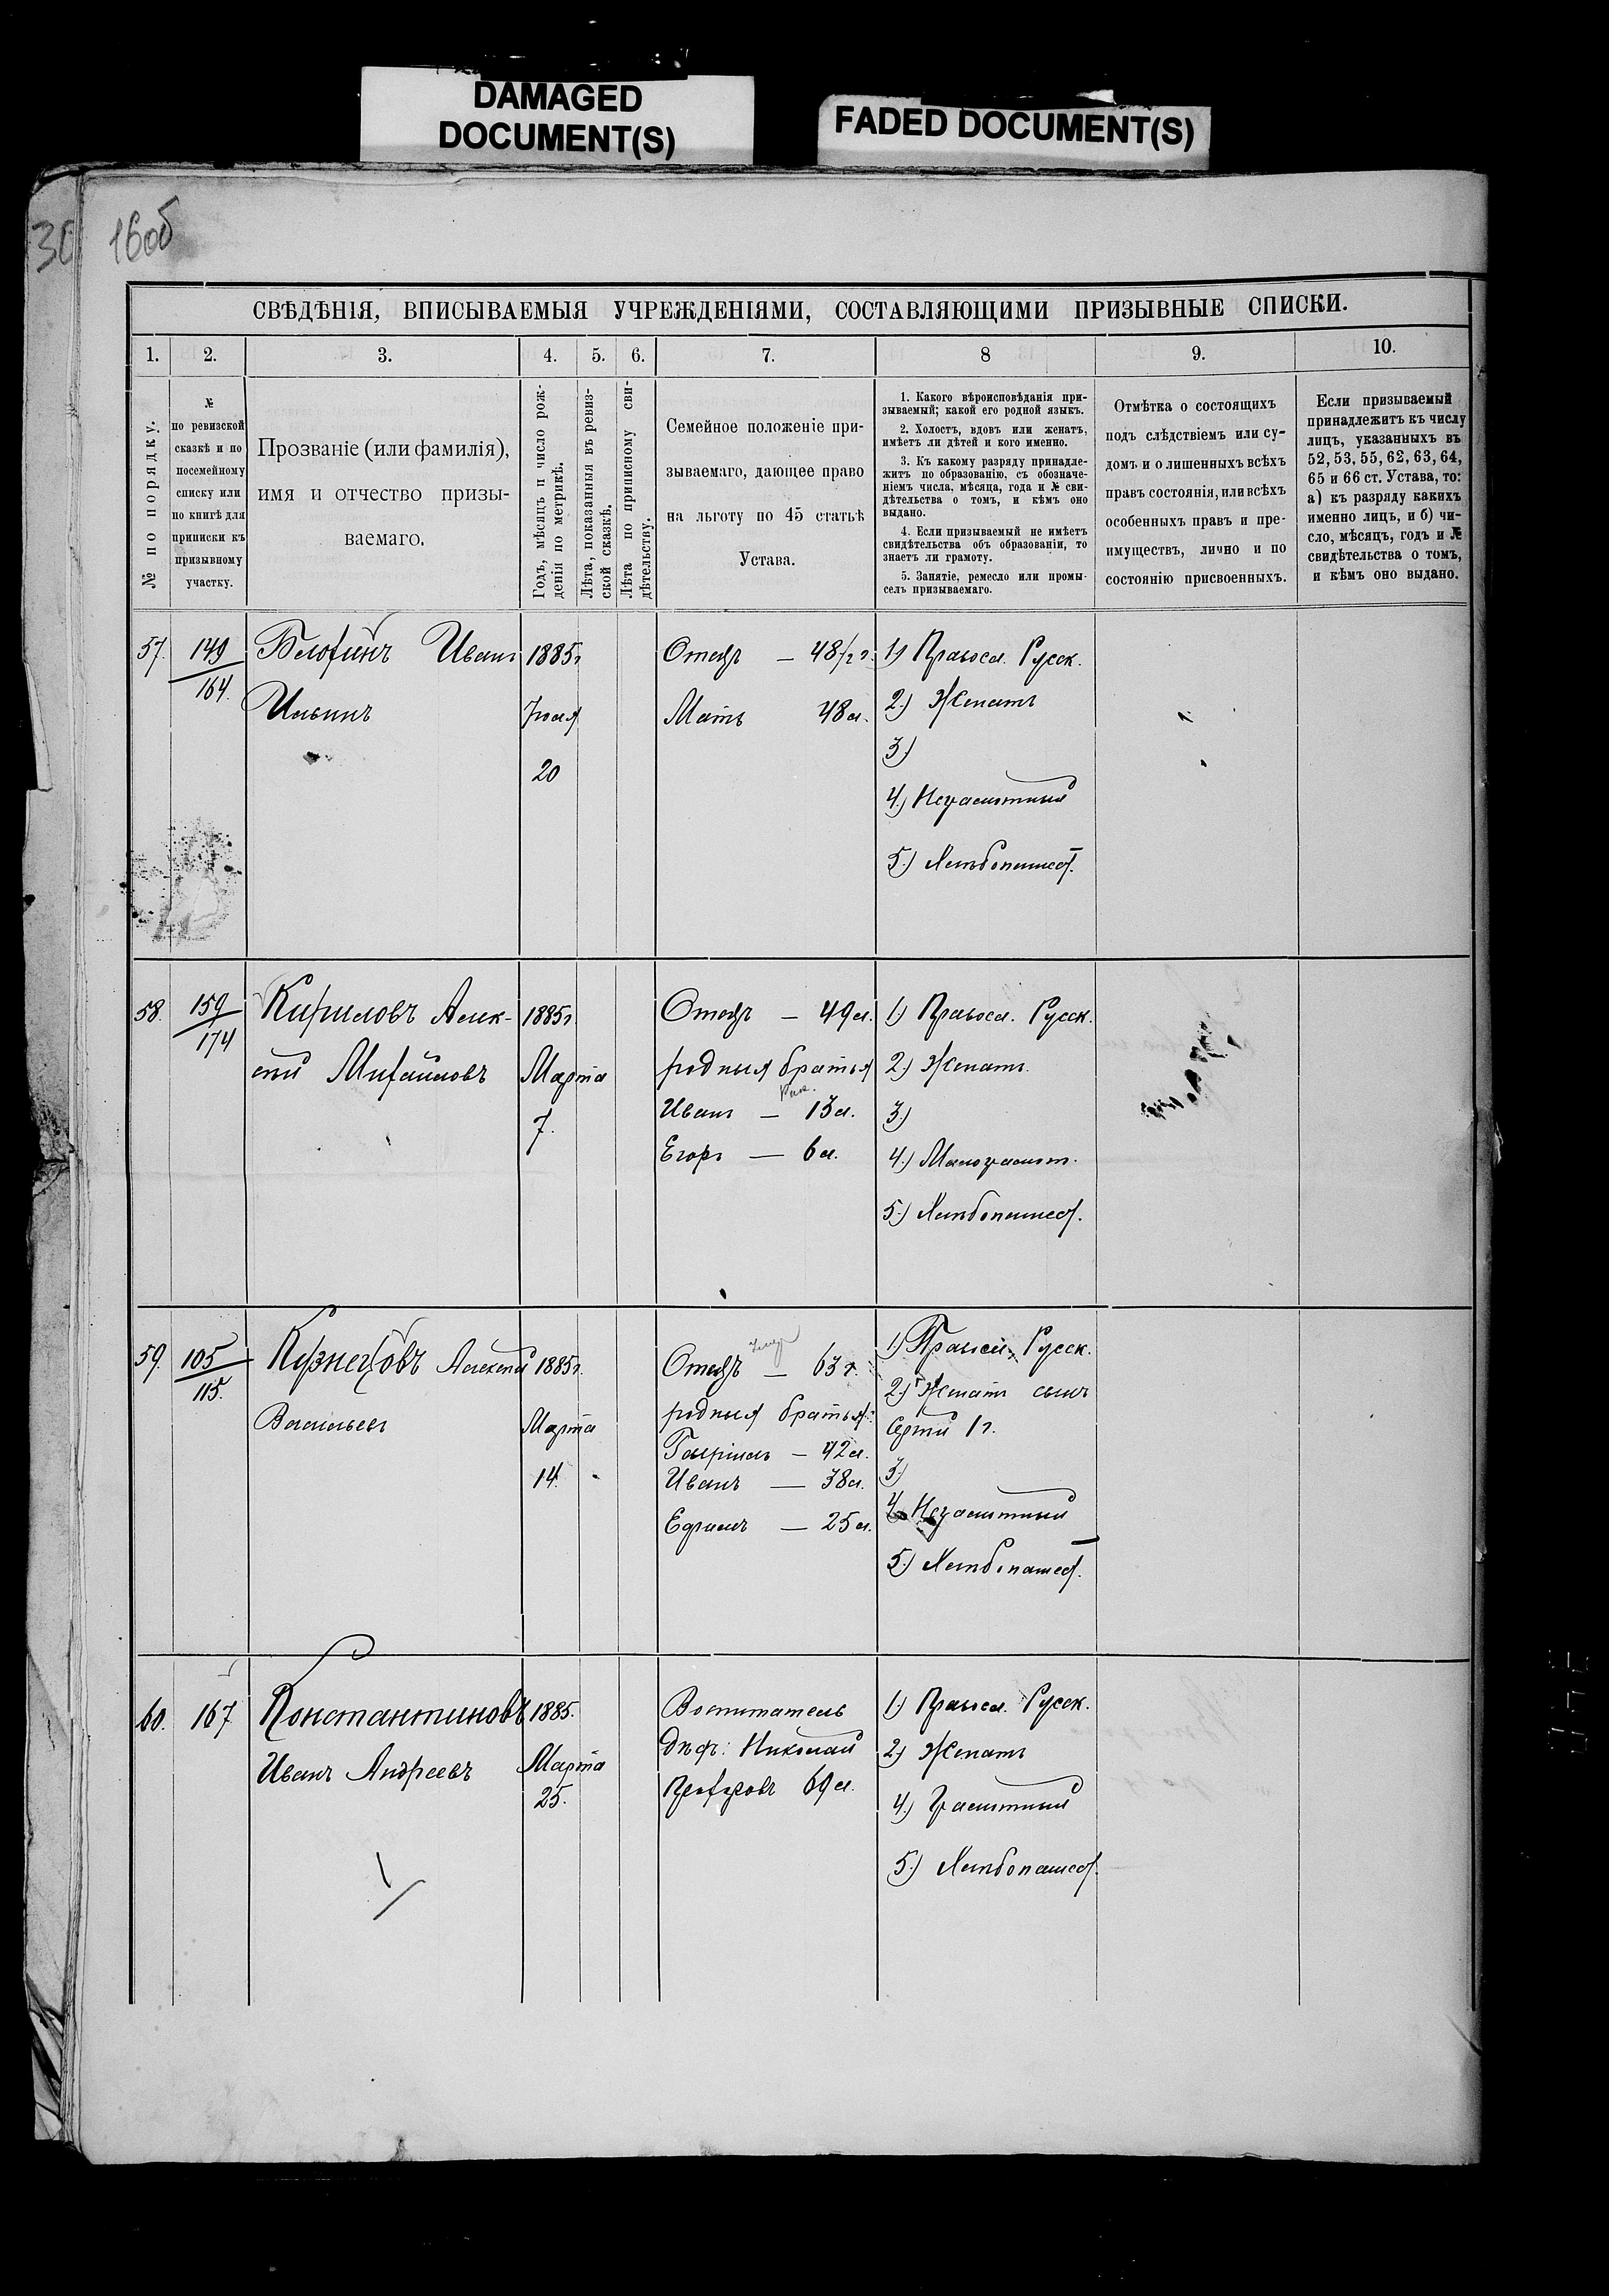 DAMAGED
DOCUMENT(S)
FADED DOCUMENT(S)
16об
СВѢДѢНІЯ, ВПИСЫВАЕМЫЯ УЧРЕЖДЕНІЯМИ, СОСТАВЛЯЮЩИМИ ПРИЗЫВНЫЕ СПИСКИ.
1. 2. 3. 4. 5. 6. 7. 8 9. 10.
№ по порядку.
№
по ревизской
сказкѣ и по
посемейному
списку или
по книгѣ для
приписки къ
призывному
участку.
Прозваніе (или фамилія),
имя и отчество призы-
ваемаго.
Годъ, мѣсяцъ и число рож-
денія по метрикѣ.
Лѣта, показанныя въ ревиз-
ской сказкѣ.
Лѣта по приписному сви-
дѣтельству.
Семейное положеніе при-
зываемаго, дающее право
на льготу по 45 статьѣ
Устава.
1. Какого вѣроисповѣданія при-
зываемый; какой его родной языкъ.
2. Холостъ, вдовъ или женатъ,
имѣетъ ли дѣтей и кого именно.
3. Къ какому разряду принадле-
житъ по образованію, съ обозначе-
ніемъ числа, мѣсяца, года и № сви-
дѣтельства о томъ, и кѣмъ оно
выдано.
4. Если призываемый не имѣетъ
свидѣтельства объ образованіи, то
знаетъ ли грамоту.
5. Занятіе, ремесло или промы-
селъ призываемаго.
Отмѣтка о состоящихъ
подъ слѣдствіемъ или су-
домъ и о лишенныхъ всѣхъ
правъ состоянія, или всѣхъ
особенныхъ правъ и пре-
имуществъ, лично и по
состоянію присвоенныхъ.
Если призываемый
принадлежитъ къ числу
лицъ, указанныхъ въ
52, 53, 55, 62, 63, 64,
65 и 66 ст. Устава, то:
а) къ разряду какихъ
именно лицъ, и б) чи-
сло, мѣсяцъ, годъ и №
свидѣтельства о томъ,
и кѣмъ оно выдано.
57.
149
164.
Иванъ
Ильинъ
1885г
20
Отецъ —
Мать 48 л.
1) Правосл. Русск.
2.) Женатъ
3.)
4.) Неграмотный
5.) Хлѣбопашец.
58.
159
174
Кириловъ Алек-
сѣй Михайловъ
1885г.
Марта
7.
Отецъ — 49 л.
родныя братья
Иванъ — 13 л.
Егоръ — 6 л.
1.) Правосл. Русск.
2.) Женатъ.
3.)
4.) Малограмот.
5.) Хлѣбопашец.
59.
105
115.
Кузнецовъ Алексѣй
Васильевъ
1885г.
Марта
14.
Отецъ — 63 г.
родныя братья:
Гавріилъ — 42 л.
Иванъ — 38 л.
Ефимъ — 25 л.
1.) Правосл. Русск.
2.) Женатъ сынъ
Сергѣй 1 г.
3.)
4.) Неграмотный
5.) Хлѣбопашец.
60.
167
Константиновъ
Иванъ Андреевъ
1885.
Марта
25.
Воспитатель
Николай
69 л.
1.) Правосл. Русск.
2.) Женатъ
4.) Грамотный
5.) Хлѣбопашец.